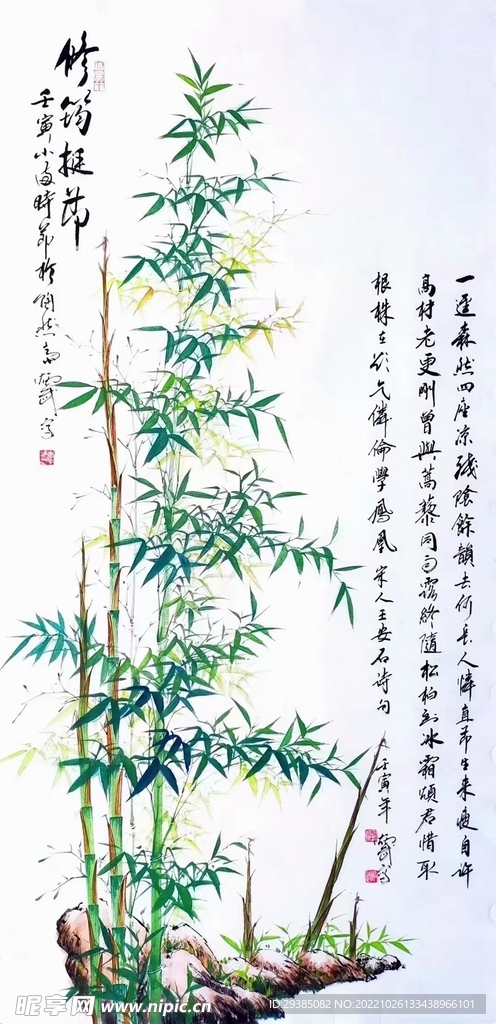 修筠挺节
壬寅小满時節於陶然斋
一逕森然四座凉殘陰餘韻去何長人憐直节生来瘦自许
高材老更刚曾與蒿藜同雨露終隨松柏到冰霜煩君惜取
根株在欲乞伶倫學鳳凰 宋人王安石诗句
壬寅年
昵享网 www.nipic.cn
ID:29385082 NO:20221026133438966101